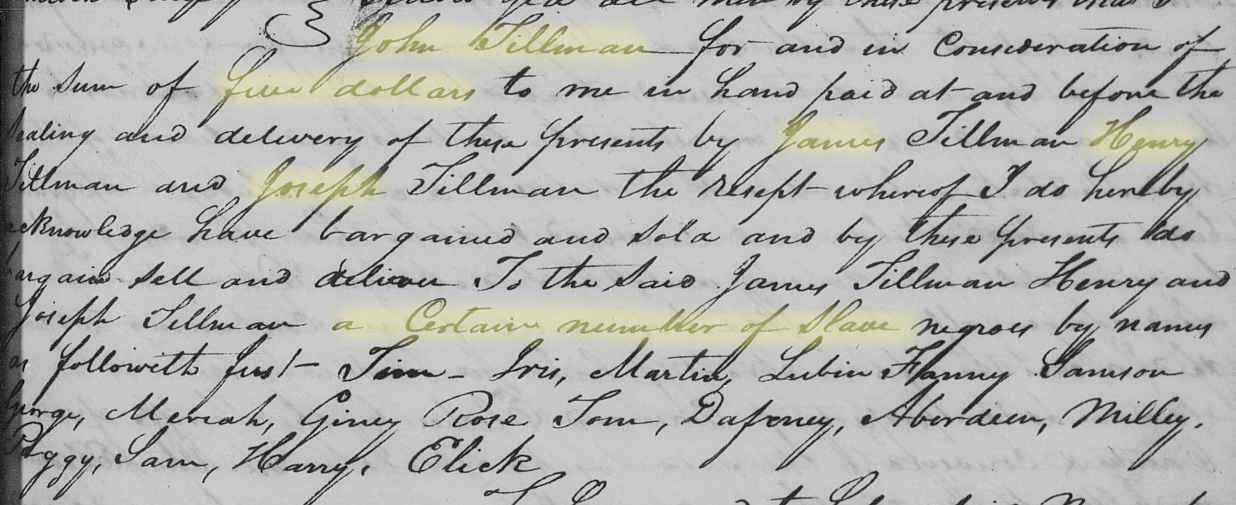 all men by these presents that I
John Tillman for and in Consideration of
the Sum of five dollars to me in hand paid at and before the
sealing and delivery of these presents by James Tillman Henry
Tillman and Joseph Tillman the resept whereof I do hereby
acknowledge have bargained and sold and by these presents do
bargain sell and deliver To the said James Tillman Henry and
Joseph Tillman a Certain number of Slave negroes by names
as followith first Tim - Iris, Martin, Lubin Fanny Samson
George, Meriah, Giney Rose Tom, Dafoney, Aberdeen, Milley,
Peggy, Sam, Harry, Elick